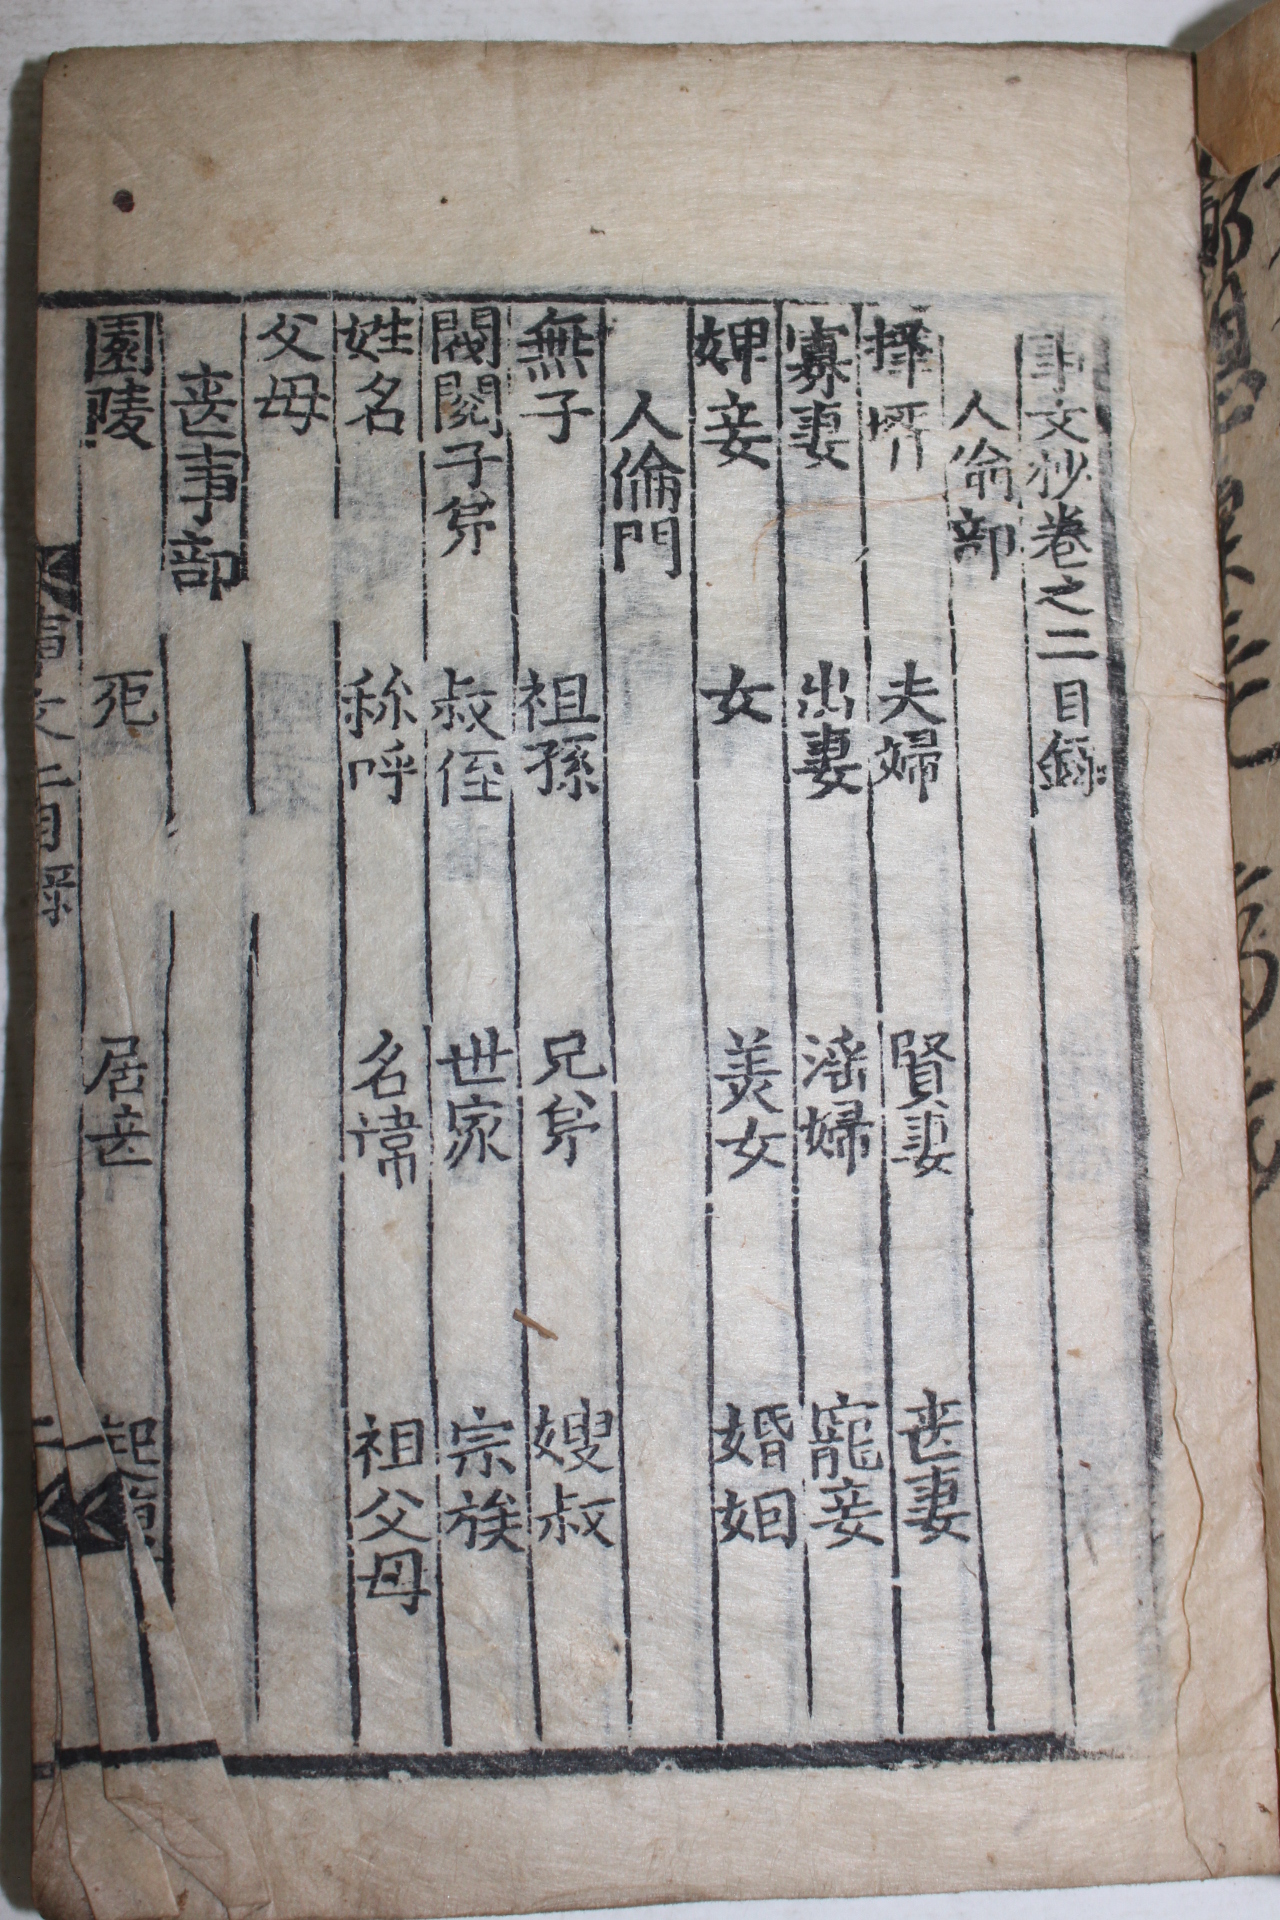 事文抄卷之二目錄
人倫部
擇壻 夫婦 賢妻 丧妻
寡妻 出妻 淫婦 寵妾
婢妾 女 美女 婚姻
人倫門
無子 祖孫 兄弟 嫂叔
閥閱子弟 叔侄 世家 宗族
姓名 称呼 名諱 祖父母
父母
丧事部
園陵 死 居丧
文二目录